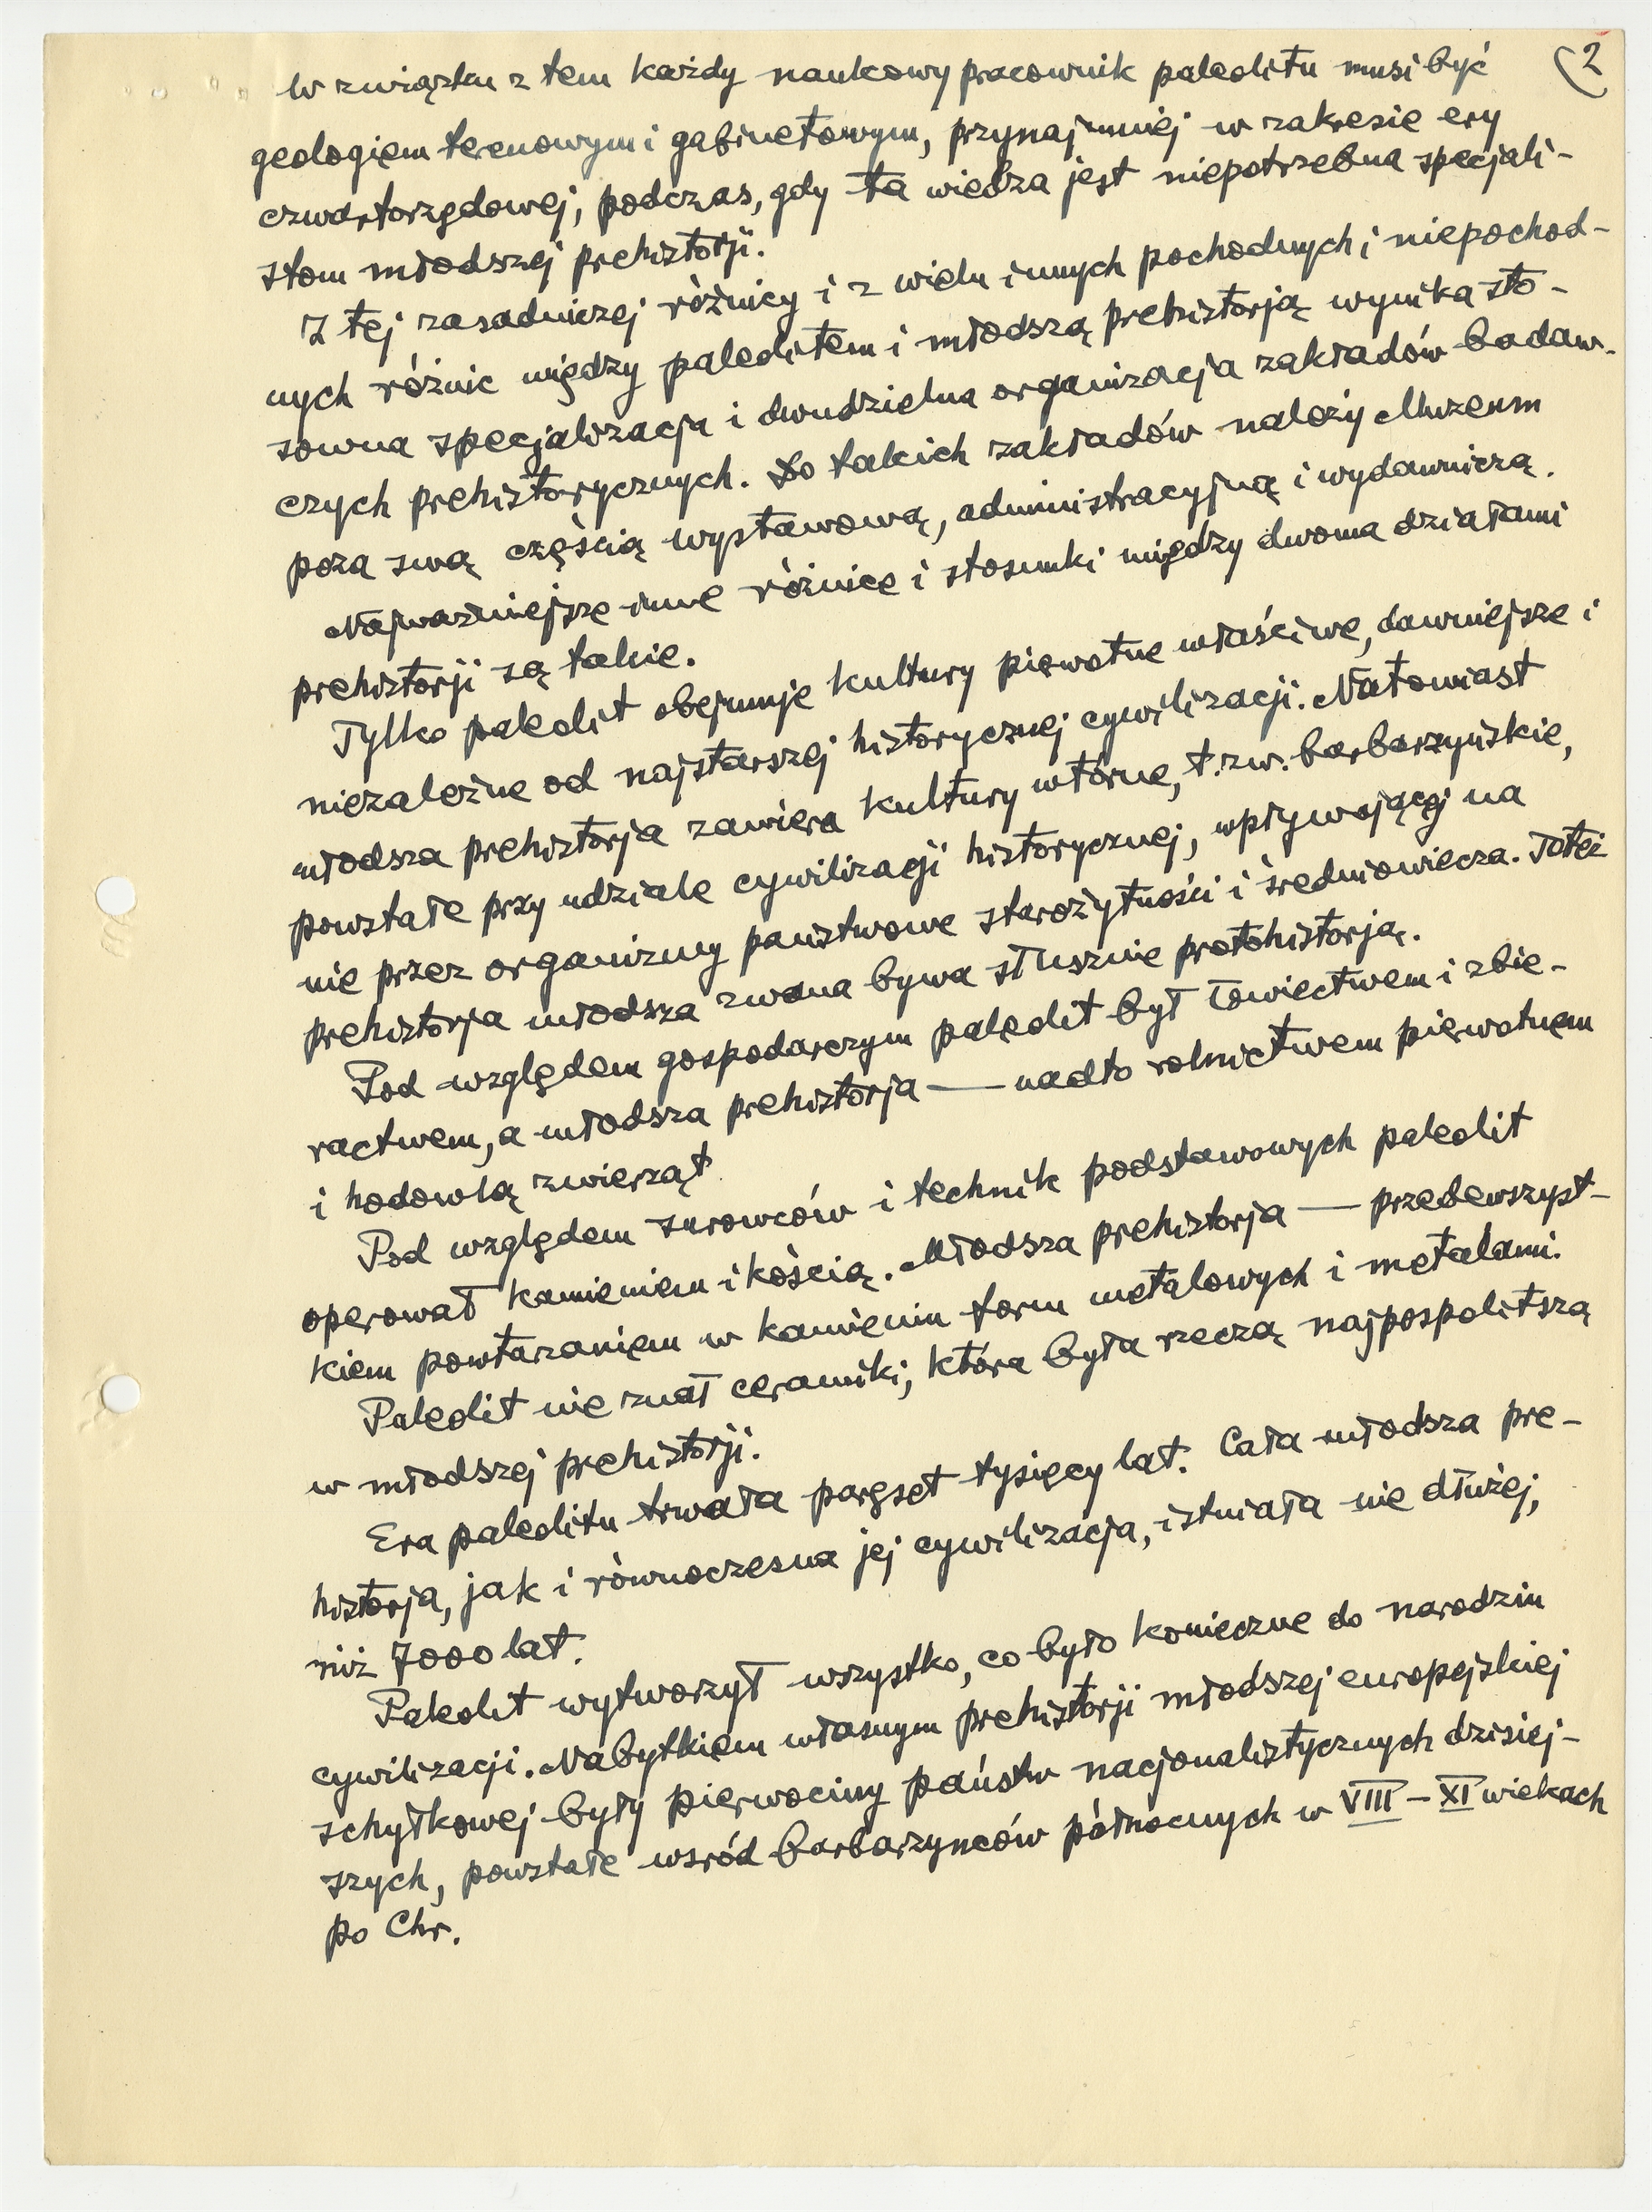 2
W związku z tem każdy naukowy pracownik paleolitu musi być
geologiem terenowym i gabinetowym, przynajmniej w zakresie ery
czwartorzędowej, podczas, gdy ta wiedza jest niepotrzebna specjali-
stom młodszej prehistorji.
Z tej zasadniczej różnicy i z wielu innych pochodnych i niepochod-
nych różnic między paleolitem i młodszą prehistorją wynika sto-
sowna specjalizacja i dwudzielna organizacja zakładów badaw-
czych prehistorycznych. Do takich zakładów należy Muzeum
poza swą częścią wystawową, administracyjną i wydawniczą.
Najważniejsze inne różnice i stosunki między dwoma działami
prehistorji są takie.
Tylko paleolit obejmuje kultury pierwotne właściwe, dawniejsze i
niezależne od najstarszej historycznej cywilizacji. Natomiast
młodsza prehistorja zawiera kultury wtórne, t.zw. barbarzyńskie,
powstałe przy udziale cywilizacji historycznej, wpływającej na
nie przez organizmy państwowe starożytności i średniowiecza. Toteż
prehistorja młodsza zwana bywa słusznie protohistorją.
Pod względem gospodarczym paleolit był łowiectwem i zbie-
ractwem, a młodsza prehistorja — nadto rolnictwem pierwotnem
i hodowlą zwierząt.
Pod względem surowców i technik podstawowych paleolit
operował kamieniem i kością. Młodsza prehistorja — przedewszyst-
kiem powtarzaniem w kamieniu form metalowych i metalami.
Paleolit nie znał ceramiki, która była rzeczą najpospolitszą
w młodszej prehistorji.
Era paleolitu trwała paręset tysięcy lat. Cała młodsza pre-
historja, jak i równoczesna jej cywilizacja, istniała nie dłużej,
niż 7000 lat.
Paleolit wytworzył wszystko, co było konieczne do narodzin
cywilizacji. Nabytkiem własnym prehistorji młodszej europejskiej
schyłkowej były pierwociny państw nacjonalistycznych dzisiej-
szych, powstałe wsród barbarzynców północnych w VIII – XI wiekach
po Chr.